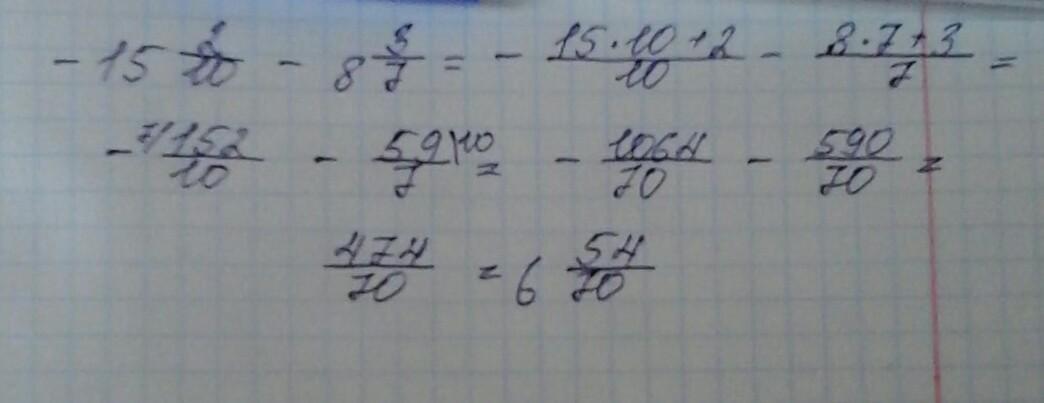 - 15 2/10 - 8 3/7 = - 15·10+2/10 - 8·7+3/7 =
- 7/152/10 - 59\10/7 = - 1064/70 - 590/70 =
474/70 = 6 54/70